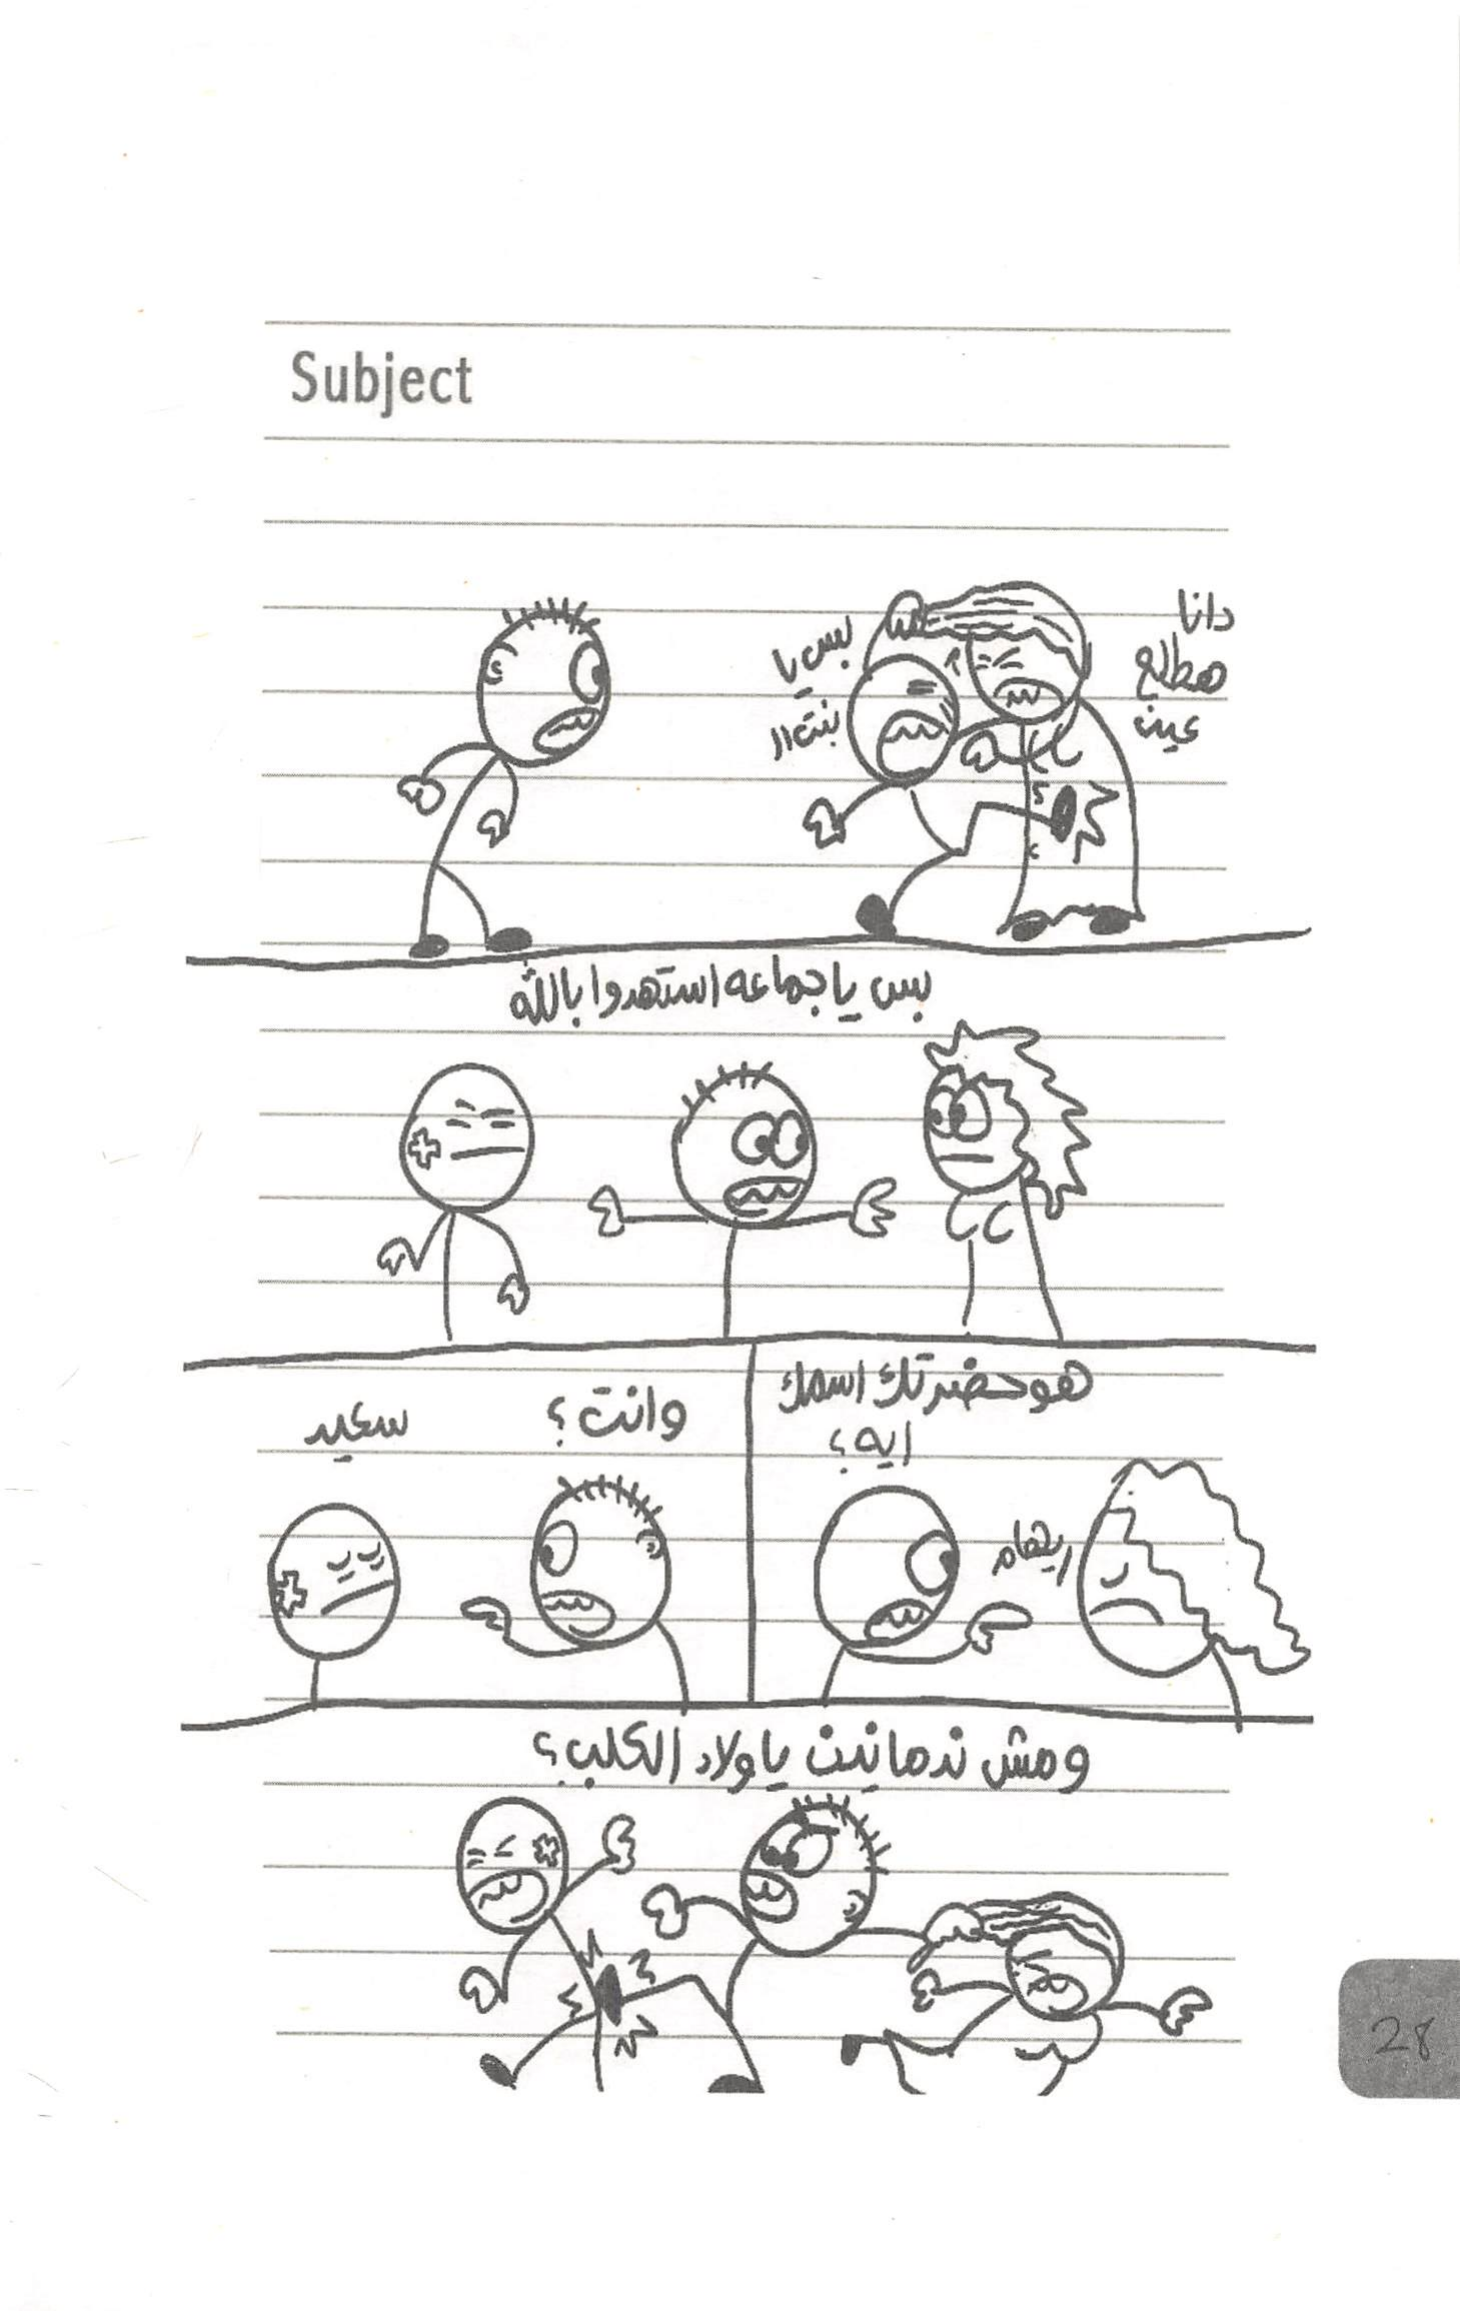 Subject
دانا
هطلع
عين
بس يا
بنت ال
بس يا جماعه استهدوا بالله
هو حضرتك اسمك
ايه؟
ريهام
وانت؟
سعيد
ومش ندمانين يا ولاد الكلب؟
28